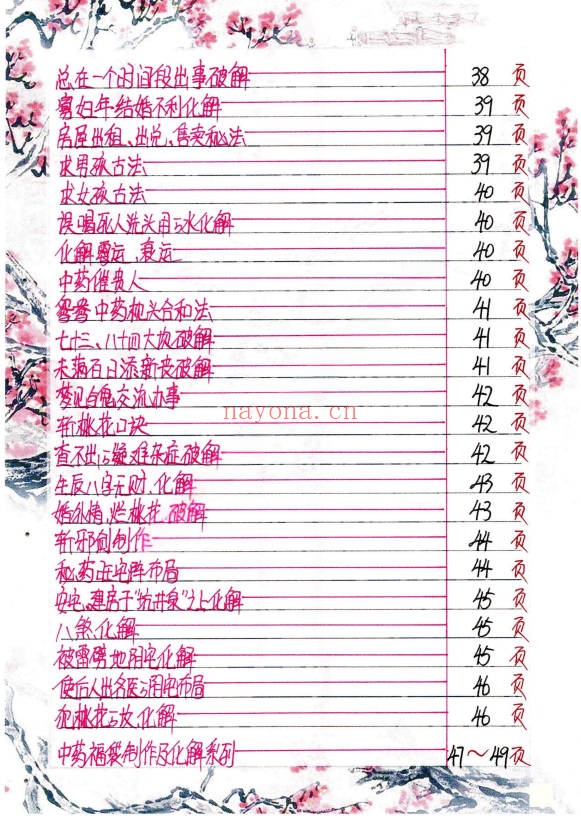 总在一个时间段出事破解 38 页
寡妇年结婚不利化解 39 页
房屋出租、出兑、售卖秘法 39 页
求男孩古法 39 页
求女孩古法 40 页
误喝死人洗头用的水化解 40 页
化解霉运、衰运 40 页
中药催贵人 40 页
鸳鸯中药枕头合和法 41 页
七十三、八十四大坎破解 41 页
未满百日添新丧破解 41 页
梦见白鬼交流办事 42 页
nayona.cn
斩桃花口诀 42 页
查不出的疑难杂症破解 42 页
生辰八字无财、化解 43 页
婚外情、烂桃花、破解 43 页
斩邪剑制作 44 页
秘药正宅阵布局 44 页
安宅、建房于“坑井泉”之上化解 45 页
八煞、化解 45 页
被雷劈地阴宅化解 45 页
使后人出名医的阴宅布局 46 页
犯桃花的坟、化解 46 页
中药福袋制作及化解系列 47～49页